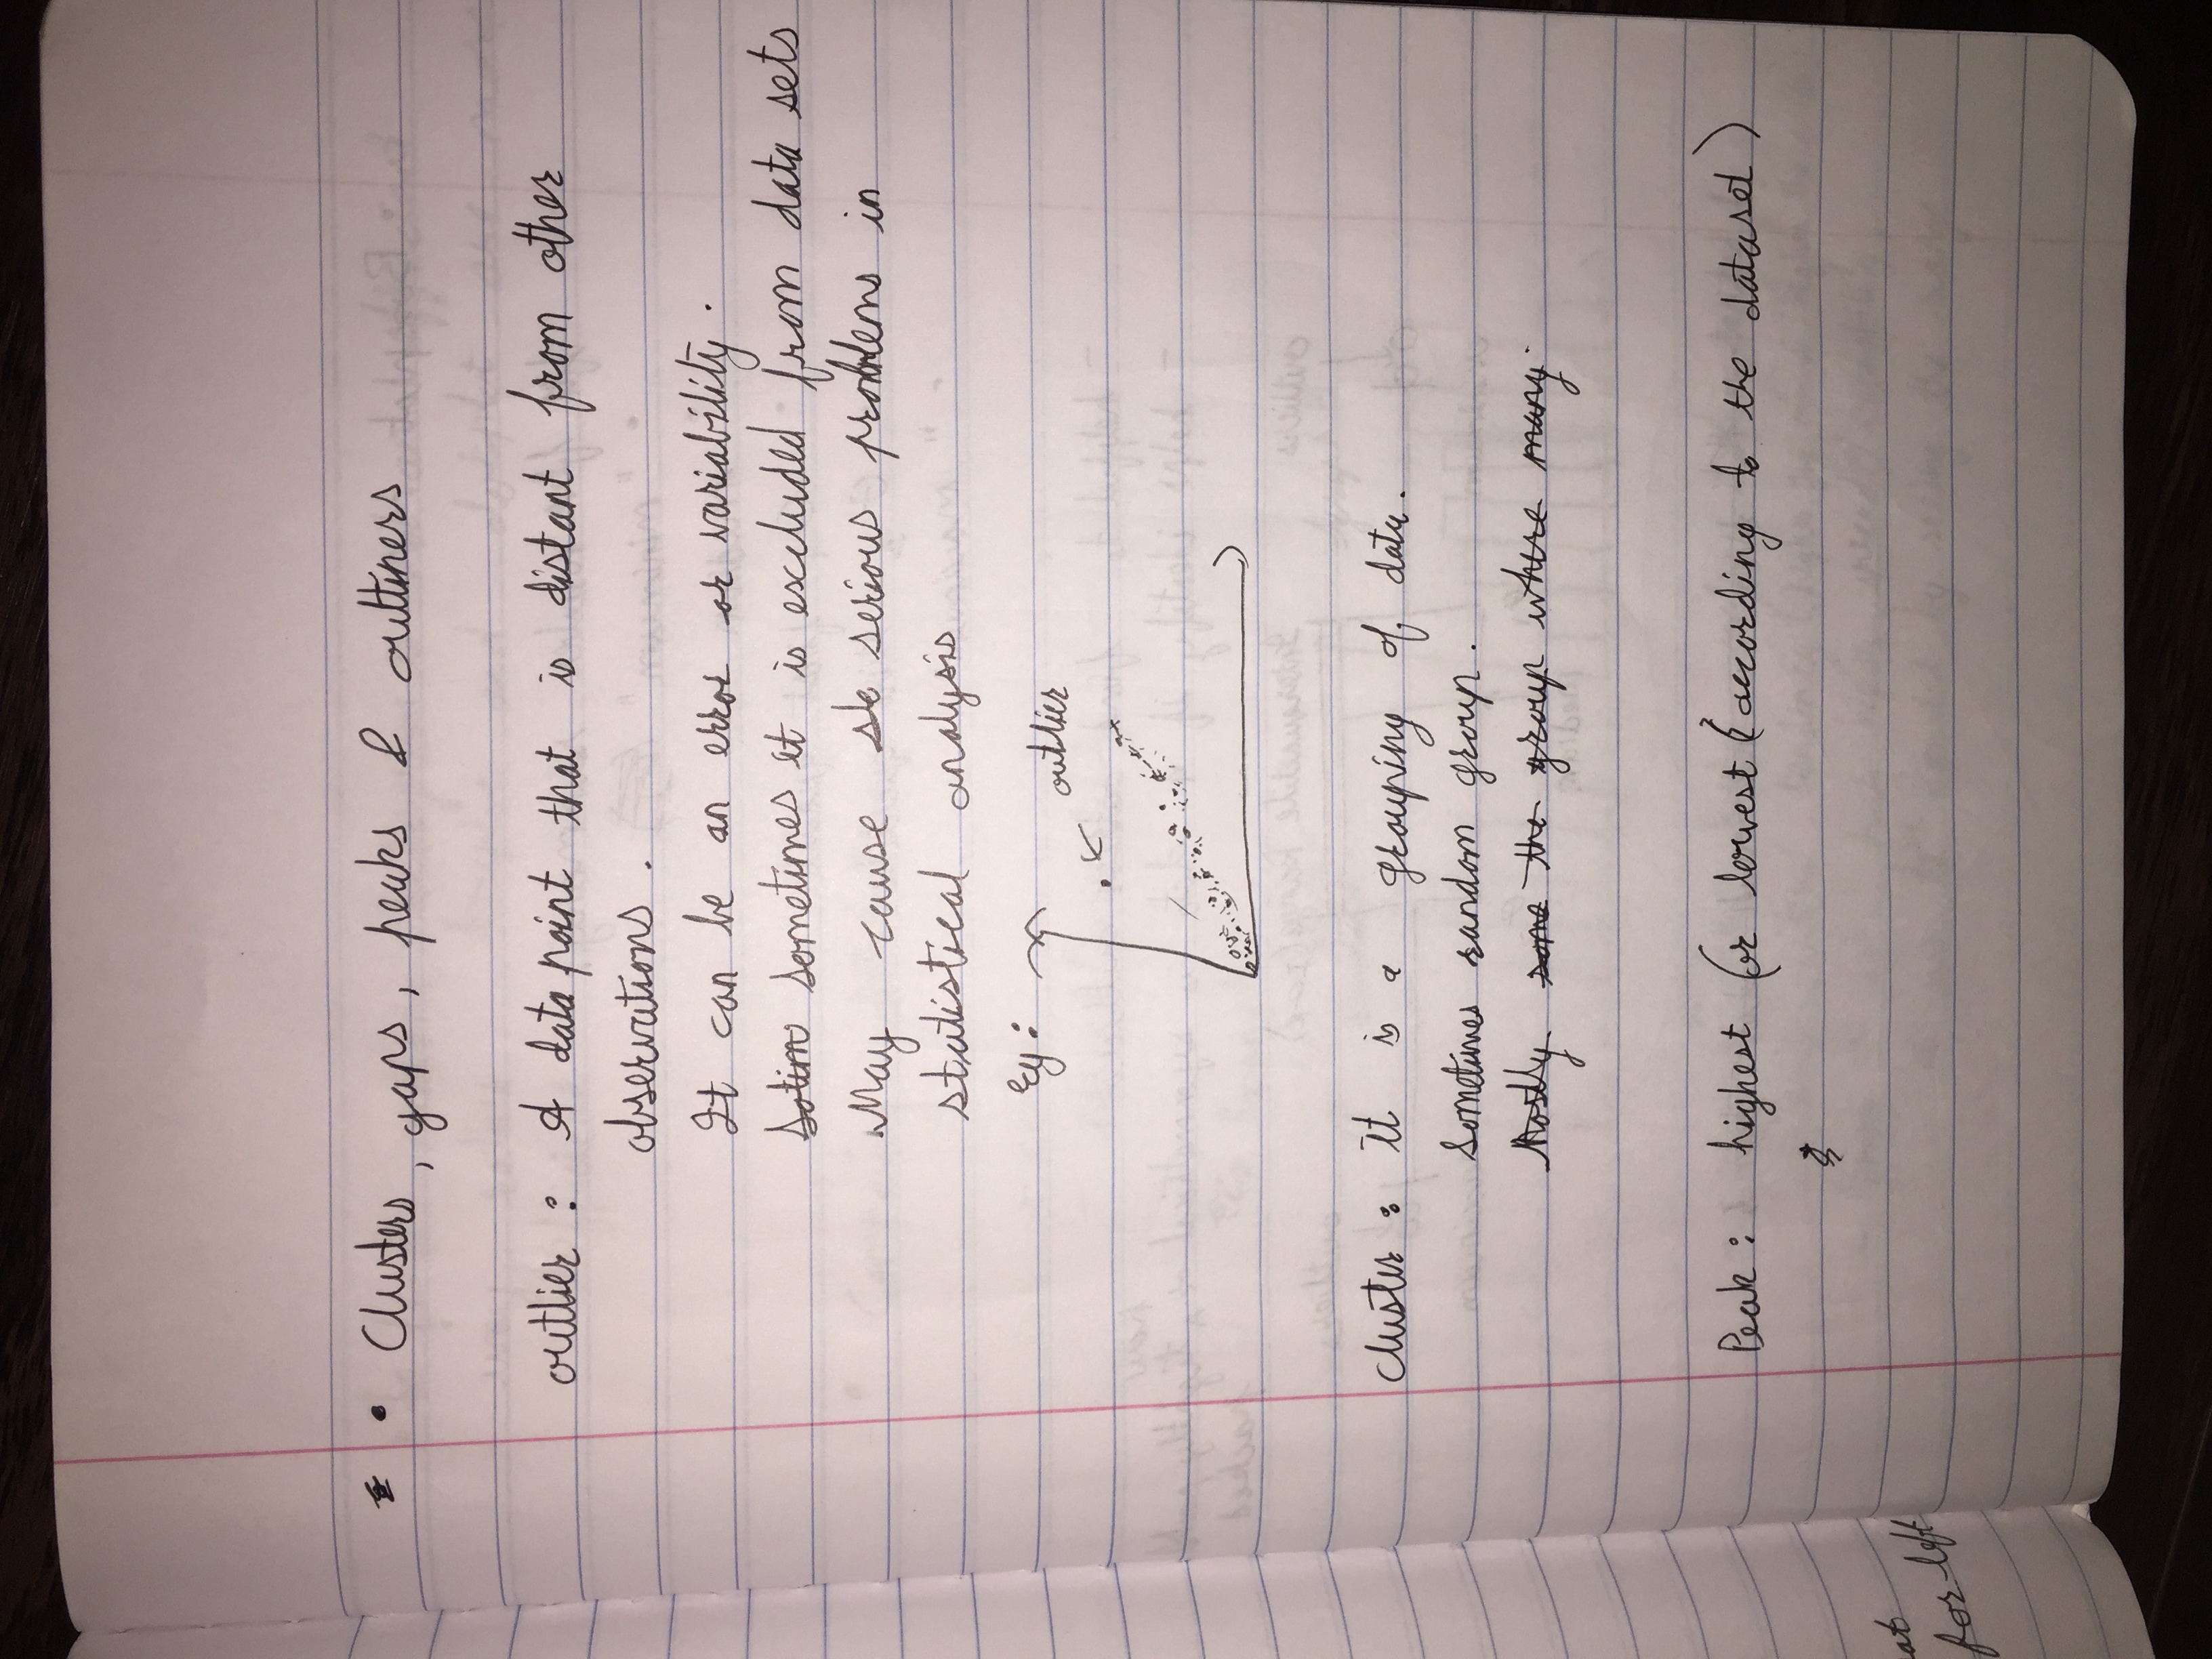 • Clusters, gaps, peaks & outtiners
outlier : A data point that is distant from other
observations.
It can be an error or variability.
Sotim sometimes it is excluded from data sets
May cause se serious problems in
statistical analysis
Eg:
outlier
Cluster : It is a grouping of data.
Sometimes random group.
Mostly some the group where many
Peak : highest (or lowest (according to the dataset)
at
for left